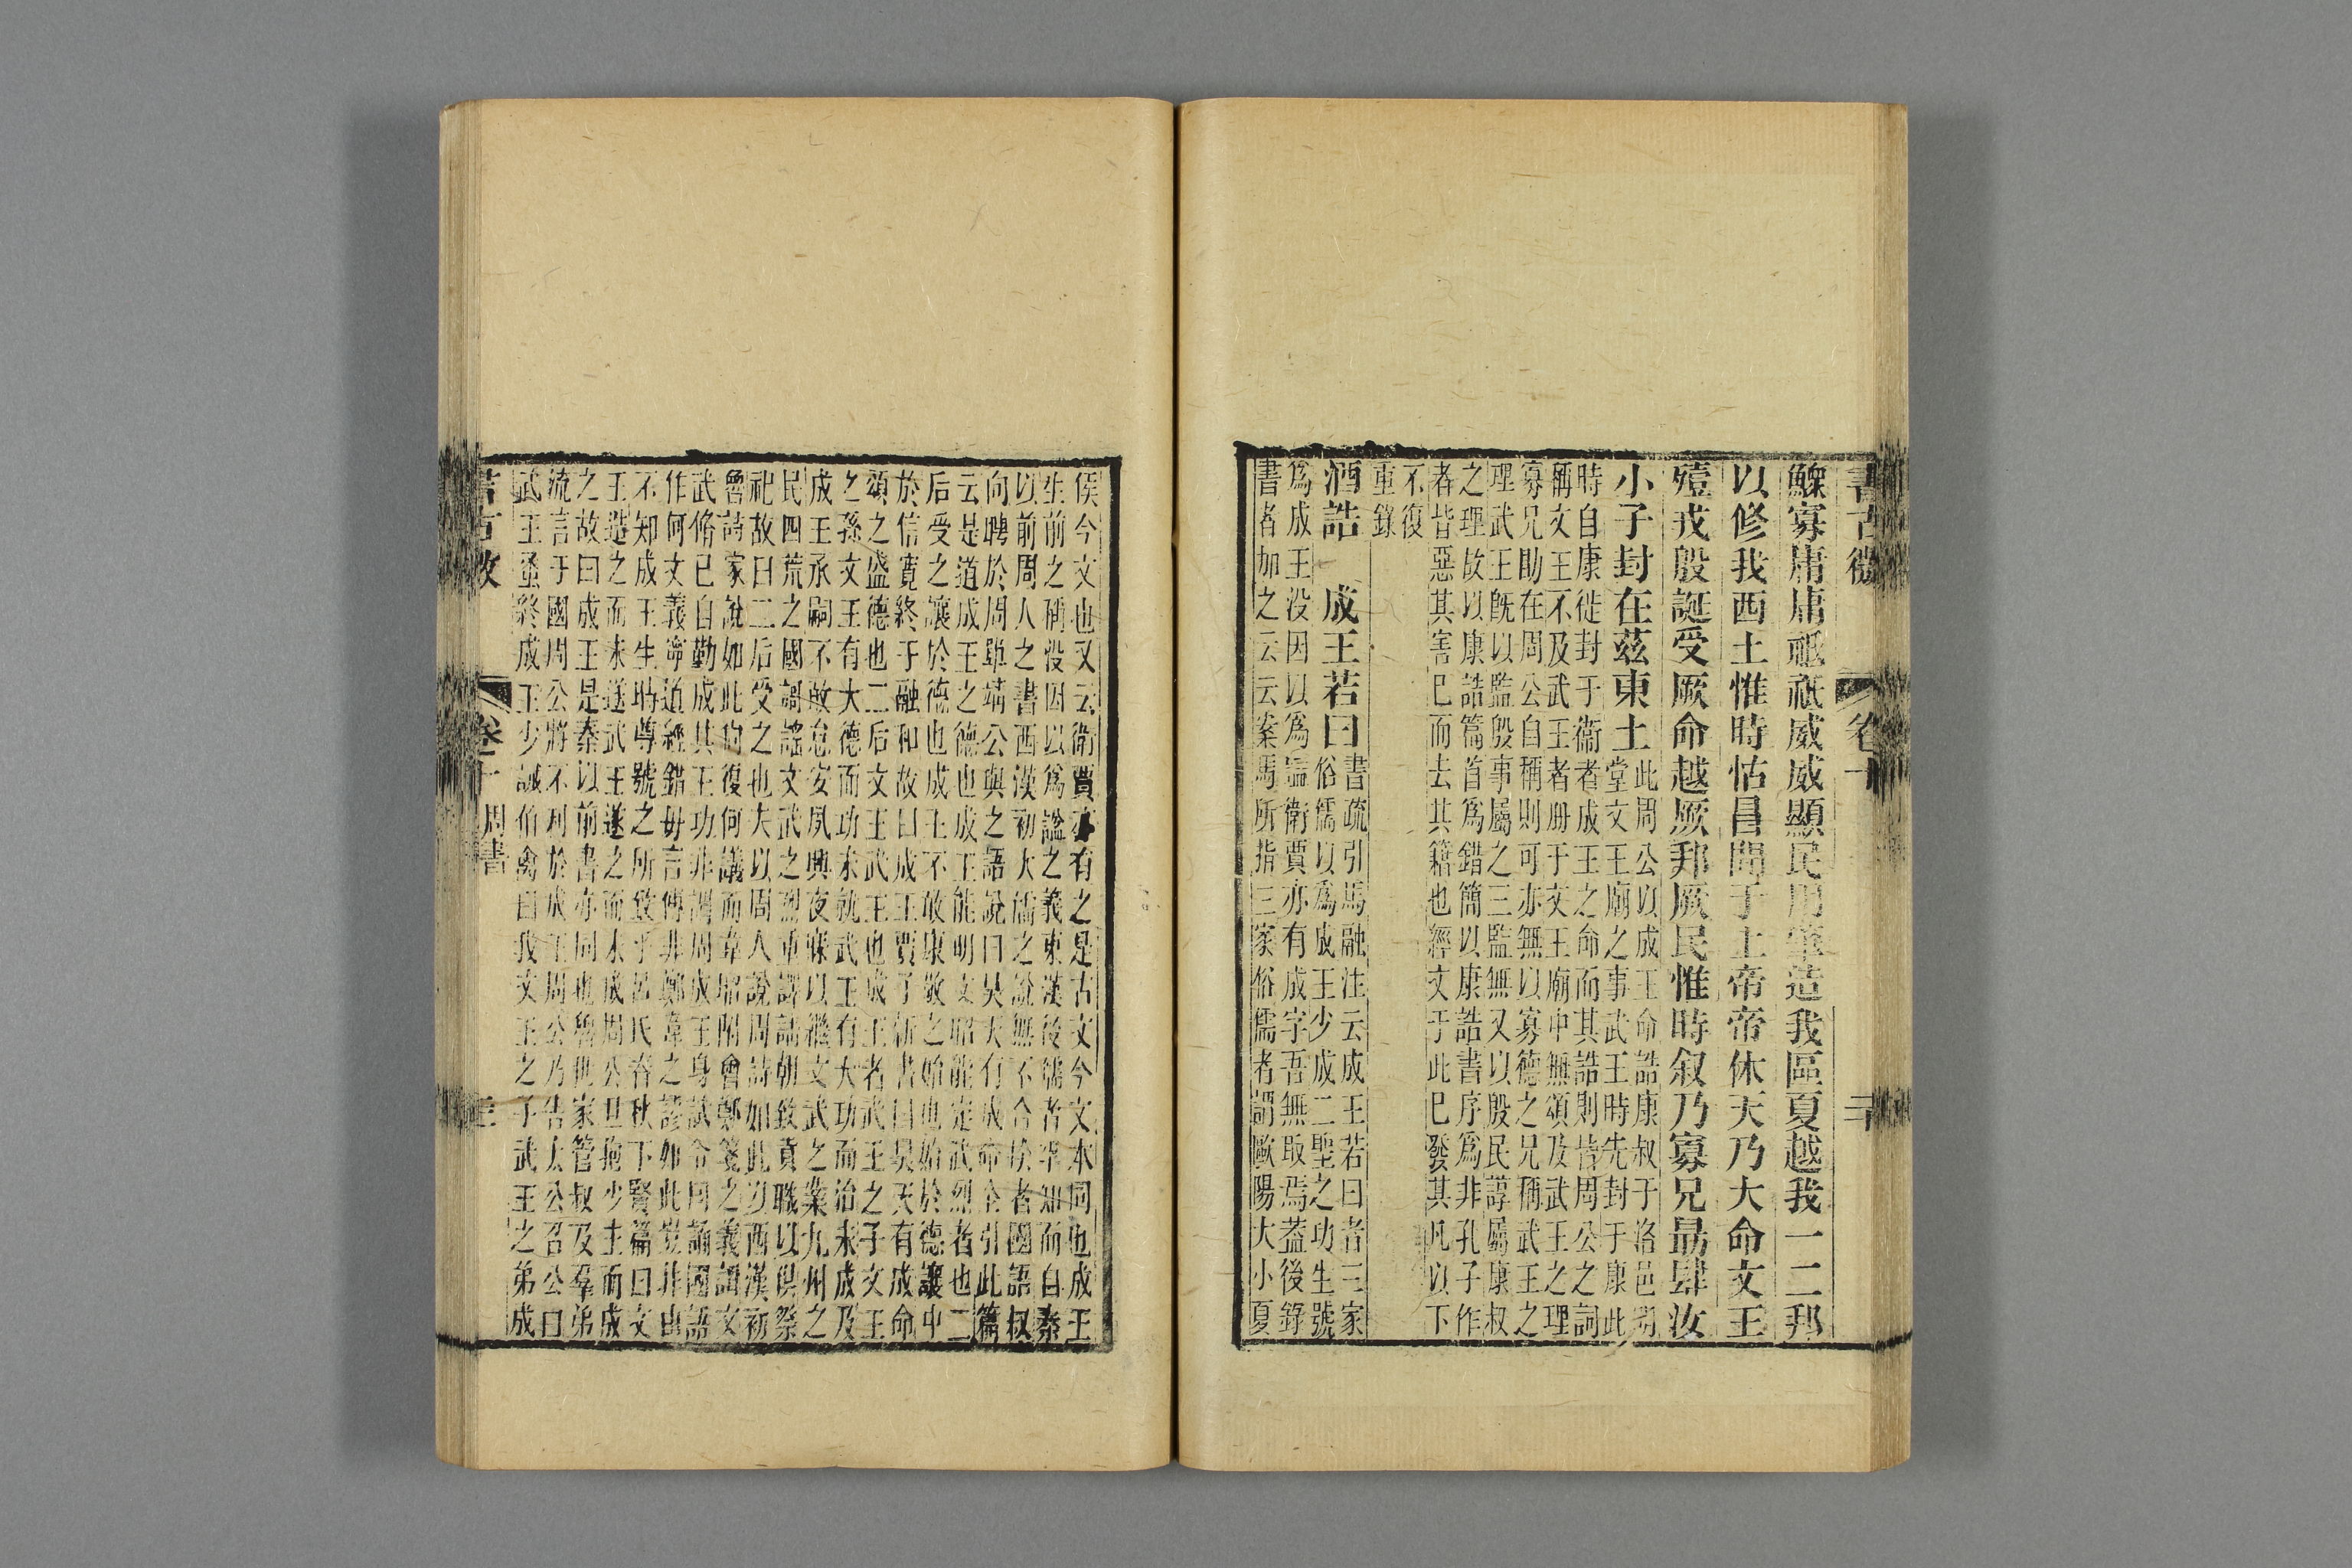 書古微
卷十
鰥寡庸庸祗祗威威顯民用肇造我區夏越我一二邦
以修我西土惟時怙冒聞于上帝帝休天乃大命文王
殪戎殷誕受厥命越厥邦厥民惟時叙乃寡兄勗肆汝
小子封在茲東土
此周公以成王命誥康叔于洛邑明
堂文王廟之事武王時先封于康此
時自康徙封于衞者成王之命而其誥則皆周公之詞
稱文王不及武王者册于文王廟中無頌及武王之理
寡兄助在周公自稱則可亦無以寡德之兄稱武王之
理武王旣以監殷事屬之三監無又以殷民諄屬康叔
之理故以康誥篇首爲錯簡以康誥書序爲非孔子作
者皆惡其害已而去其籍也經文于此已發其凡以下
不復
重錄
酒誥 成王若曰
書疏引馬融注云成王若曰者三家
俗儒以爲成王少成二聖之功生號
爲成王没因以爲諡衛賈亦有成字吾無取焉蓋後錄
書者加之云云案馬所指三家俗儒者謂歐陽大小夏
侯今文也又云衛賈亦有之是古文今文本同也成王
生前之稱没因以爲諡之義東漢後儒者罕知而自秦
以前周人之書西漢初大儒之說無不合矣者國語叔
向聘於周單靖公與之語說曰昊天有成命全引此篇
云是道成王之德也成王能明文昭能定武烈者也二
后受之讓於德也成王不敢康敬之始也始於德讓中
於信寛終于融和故曰成王賈子新書曰昊天有成命
頌之盛德也二后文王武王也成王者武王之子文王
之孫文王有大德而功未就武王有大功而治未成及
成王承嗣不敢怠安夙興夜寐以繼文武之業九州之
民四荒之國謌謠文武之烈重譯請朝致貢職以供祭
祀故曰二后受之也夫以周人說周詩如此以西漢初
魯詩家說如此尙復何議而韋昭附會鄭箋之義謂文
武脩已自勤成其王功非謂周成王身試令問誦國語
作何文義寧道經錯毋言傳非鄭韋之謬如此豈非由
不知成王生時尊號之所致乎呂氏春秋下賢篇曰文
王造之而未遂武王遂之而未成周公旦抱少主而成
之故曰成王是秦以前書亦同也魯世家管叔及羣弟
流言于國周公將不利於成王周公乃告太公召公曰
武王蚤終成王少誡伯禽曰我文王之子武王之弟成
卷十 周書